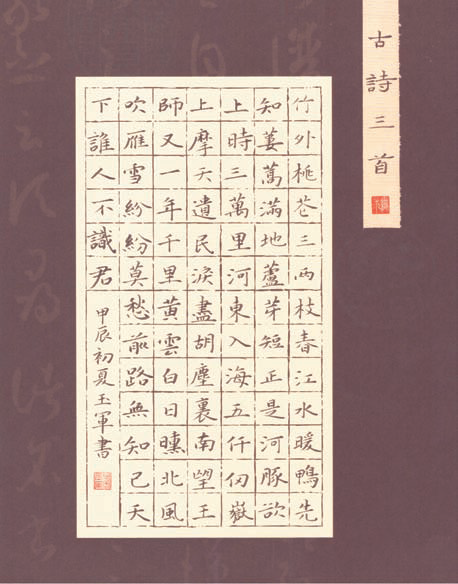 古詩三首
竹外桃花三兩枝春江水暖鴨先
知蔞蒿滿地蘆芽短正是河豚欲
上時三萬里河東入海五仟仞嶽
上摩天遺民淚盡胡塵裏南望王
師又一年千里黃雲白日曛北風
吹雁雪紛紛莫愁前路無知己天
下誰人不識君
甲辰初夏玉軍書